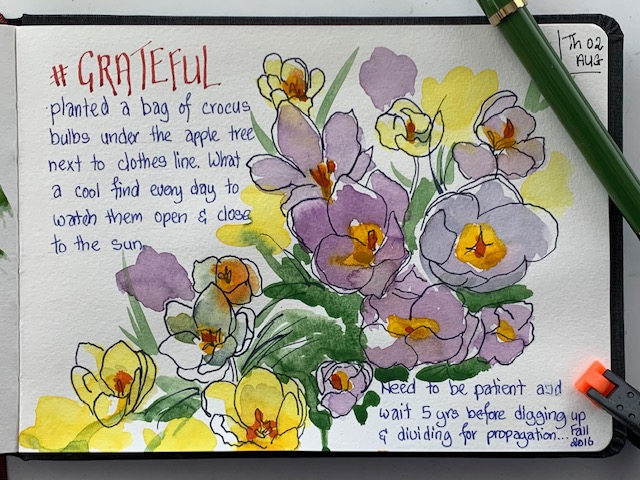 # GRATEFUL
Th 02
AUG
planted a bag of crocus
bulbs under the apple tree
next to clothes line. What
a cool find every day to
watch them open & close
to the sun.
Need to be patient and
wait 5 yrs before digging up
& dividing for propagation... Fall
2016